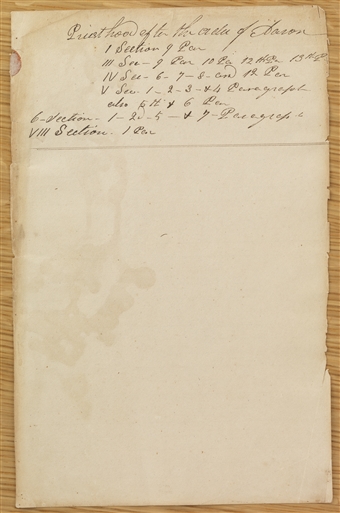 Priesthood after the order of Aaron
I Section 9 Par
III Sec - 9 Par 10 Pa 12th Par 13th P
IV Sec - 6 - 7 - 8 - and 12 Par
V Sec. 1 - 2 - 3 - & 4 Paragraph
also 5th & 6 Par
6 - Section - 1 - 2 - 5 - & 7 - Paragraphs
VIII Section - 1 Par